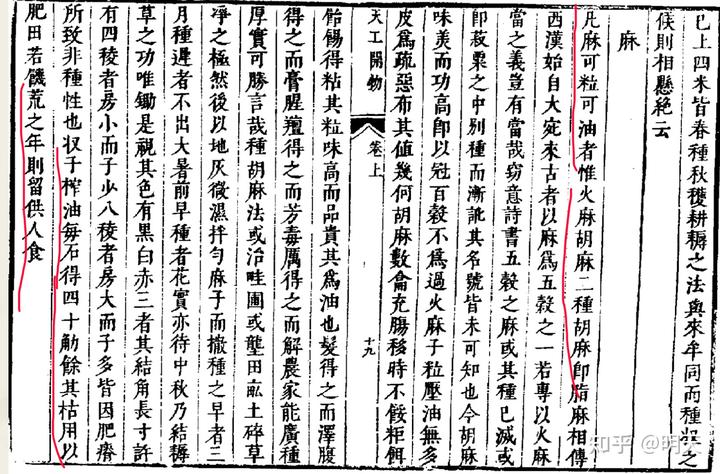 已上四米皆春種秋穫耕耨之法與來牟同而種收之
候則相懸絕云
麻
凡麻可粒可油者惟火麻胡麻二種胡麻即脂麻相傳
西漢始自大宛來古者以麻為五穀之一若專以火麻
當之義豈有當哉竊意詩書五穀之麻或其種已滅或
即菽粟之中別種而漸訛其名號皆未可知也今胡麻
味美而功高即以冠百穀不為過火麻子粒壓油無多
皮為疏惡布其值幾何胡麻數龠充腸移時不餒粔餌
天工開物 卷上 十九
飴餳得粘其粒味高而品貴其為油也髮得之而澤腹
得之而膏腥羶得之而芳毒厲得之而解農家能廣種
厚實可勝言哉種胡麻法或治畦圃或壟田畝土碎草
淨之極然後以地灰微濕拌勻麻子而撒種之早者三
月種遲者不出大暑前早種者花實亦待中秋乃結耨
草之功唯鋤是視其色有黑白赤三者其結角長寸許
有四稜者房小而子少八稜者房大而子多皆因肥瘠
所致非種性也收子榨油每石得四十觔餘其枯用以
肥田若饑荒之年則留供人食
知乎 @明